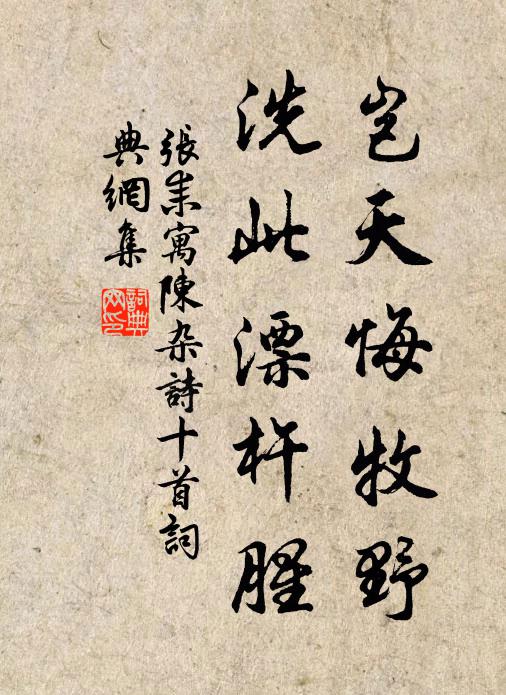 豈天悔牧野
洗此漂杵腥
張耒寓陳杂詩十首詞
典網集
詞典网印